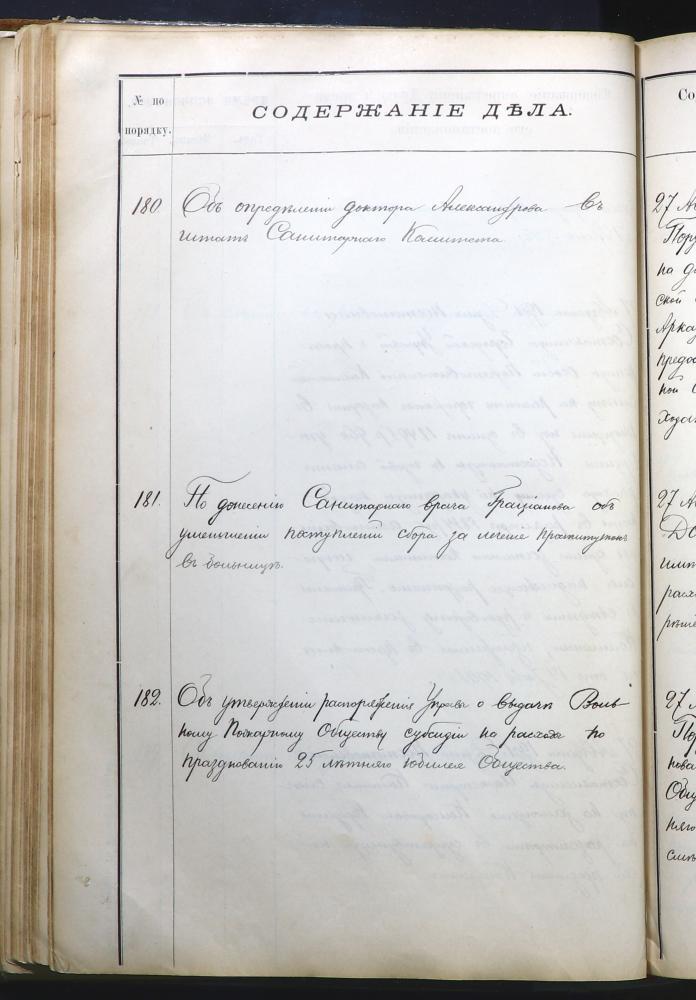 № по
порядку.
СОДЕРЖАНІЕ ДѢЛА.
180
Объ опредѣленіи доктора Александрова въ
штатъ Санитарнаго Комитета
181.
По донесенію Санитарнаго врача Граціанова объ
уменьшеніи поступленій сбора за леченіе проститутокъ
въ больницѣ.
182.
Объ утвержденіи распоряженія Управы о выдачѣ Воль
ному Пожарному Обществу субсидіи на расходы по
празднованію 25 лѣтняго юбилея Общества.
Со
27 А
Пору
на д
ской
Арка
предос
ной
ходат
27 А
До
расх
рѣше
27 А
По
нова
Общ
няго